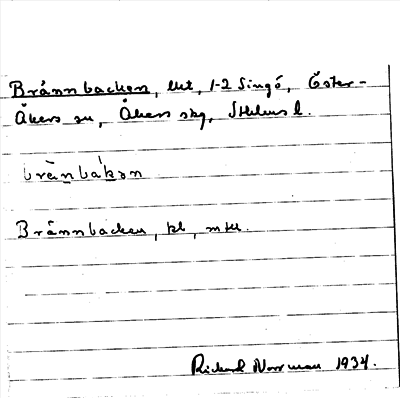 Brännbacken, lht, 1-2 Singö, Öster-
Åkers sn, Åkers skg, Sthlms l.
brän bàkən
Brännbacken, pl, mtl.
Rickard Norrman 1934.